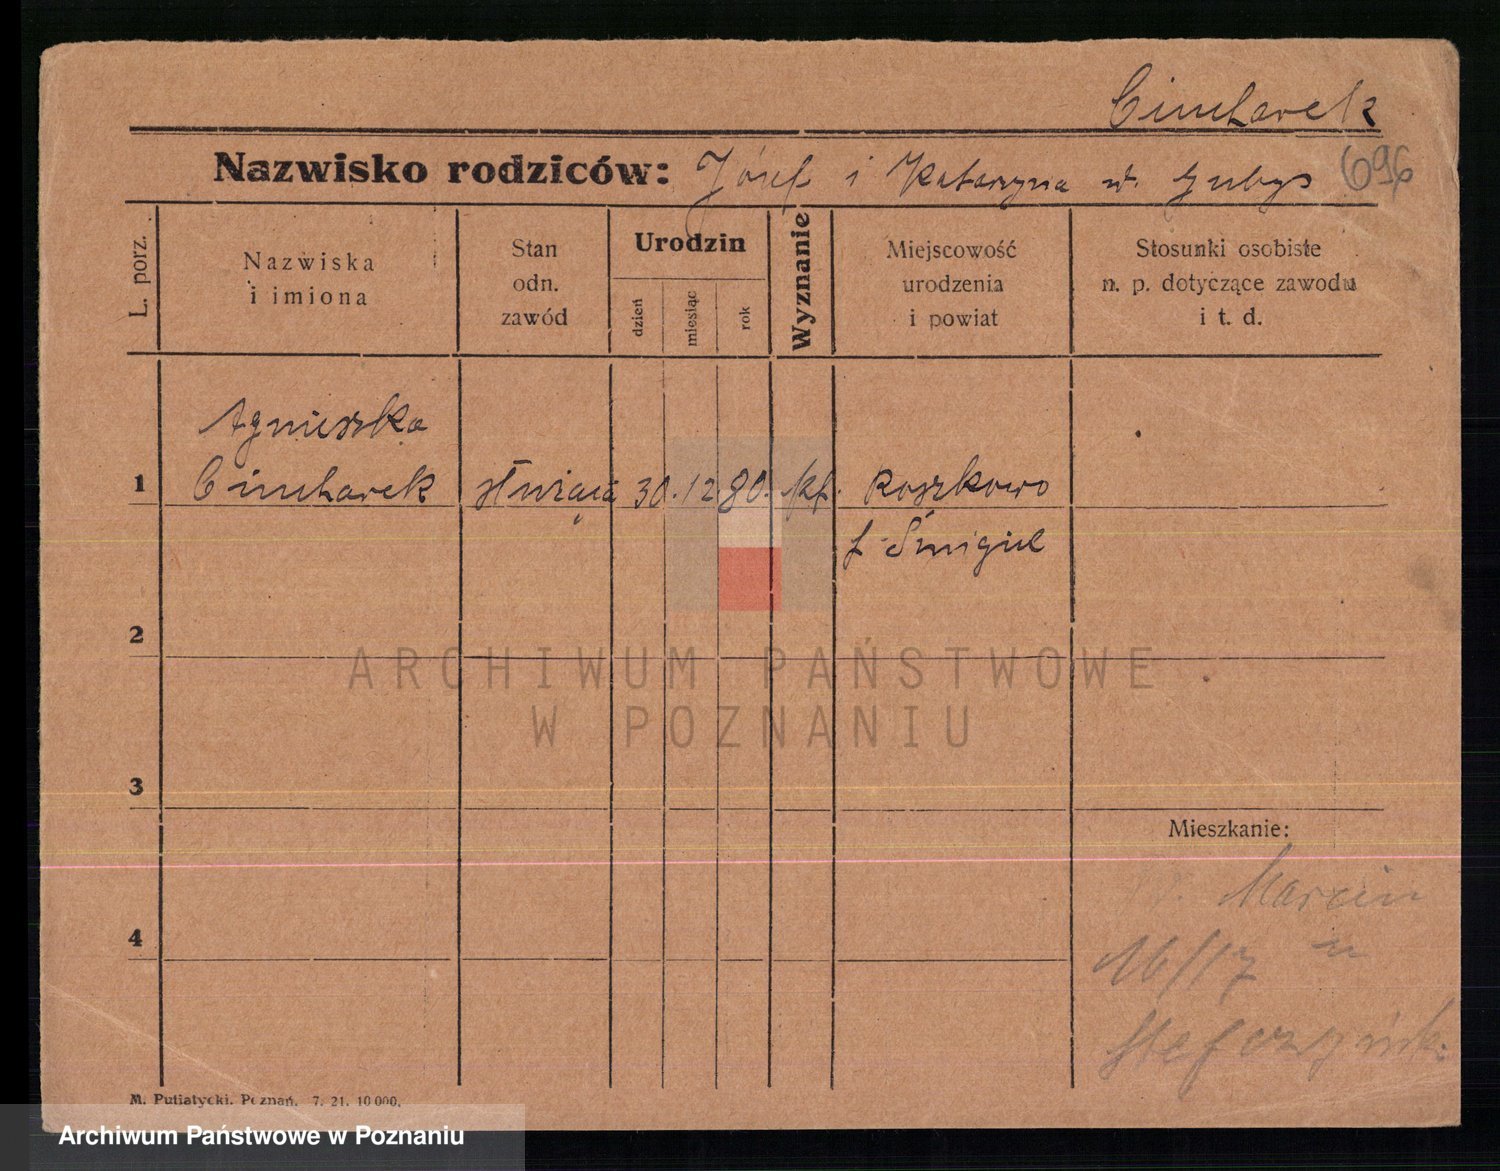 Cincharek
Nazwisko rodziców: Józef i Katarzyna
696
L. porz.
Nazwiska
i imiona
Stan
odn.
zawód
Urodzin
dzień
miesiąc
rok
Wyznanie
Miejscowość
urodzenia
i powiat
Stosunki osobiste
n. p. dotyczące zawodu
i t. d.
Agnieszka
1 Cincharek służąca 30. 12 80. kt. Roszkowo
Śmigiel
2
ARCHIWUM PAŃSTWOWE
W POZNANIU
3
Mieszkanie:
Marcin
4
16/17
M. Putiatycki. Poznań. 7. 21. 10000.
Archiwum Państwowe w Poznaniu